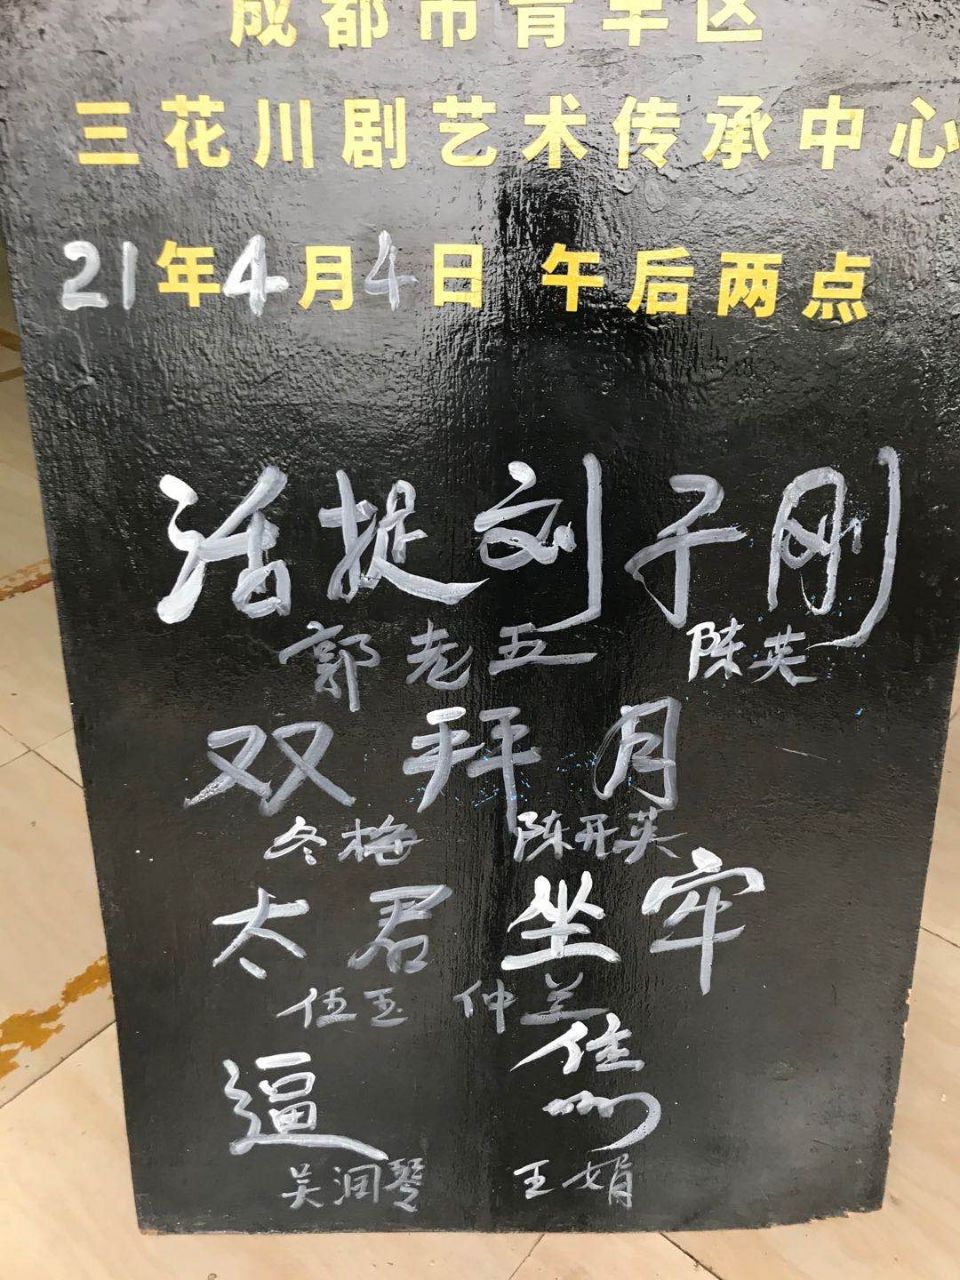 成都市青羊区
三花川剧艺术传承中心
21年4月4日 午后两点
活捉刘子刚
郭老五 陈英
双拜月
冬梅 陈开英
太君坐牢
伍玉 仲兰
逼侄
吴润琴 王娟